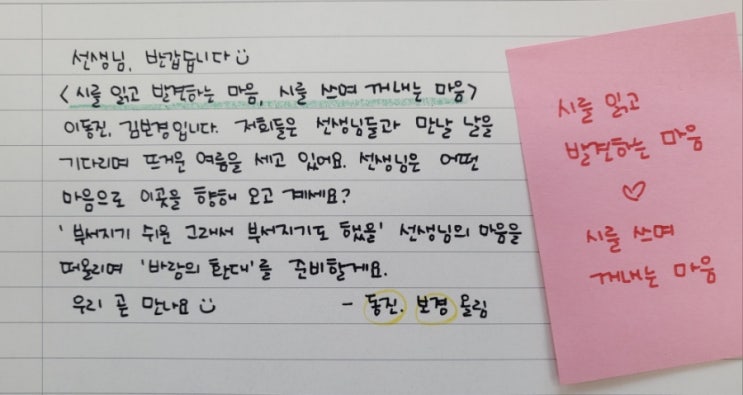 선생님, 반갑습니다
<시를 읽고 발견하는 마음, 시를 쓰며 꺼내는 마음>
이동진, 김보경입니다. 저희들은 선생님들과 만날 날을
기다리며 뜨거운 여름을 세고 있어요. 선생님은 어떤
마음으로 이곳을 향해 오고 계세요?
'부서지기 쉬운 그래서 부서지기도 했을' 선생님의 마음을
떠올리며 '바람의 환대'를 준비할게요.
우리 곧 만나요
- 동진, 보경 올림
시를 읽고
발견하는 마음
♡
시를 쓰며
꺼내는 마음